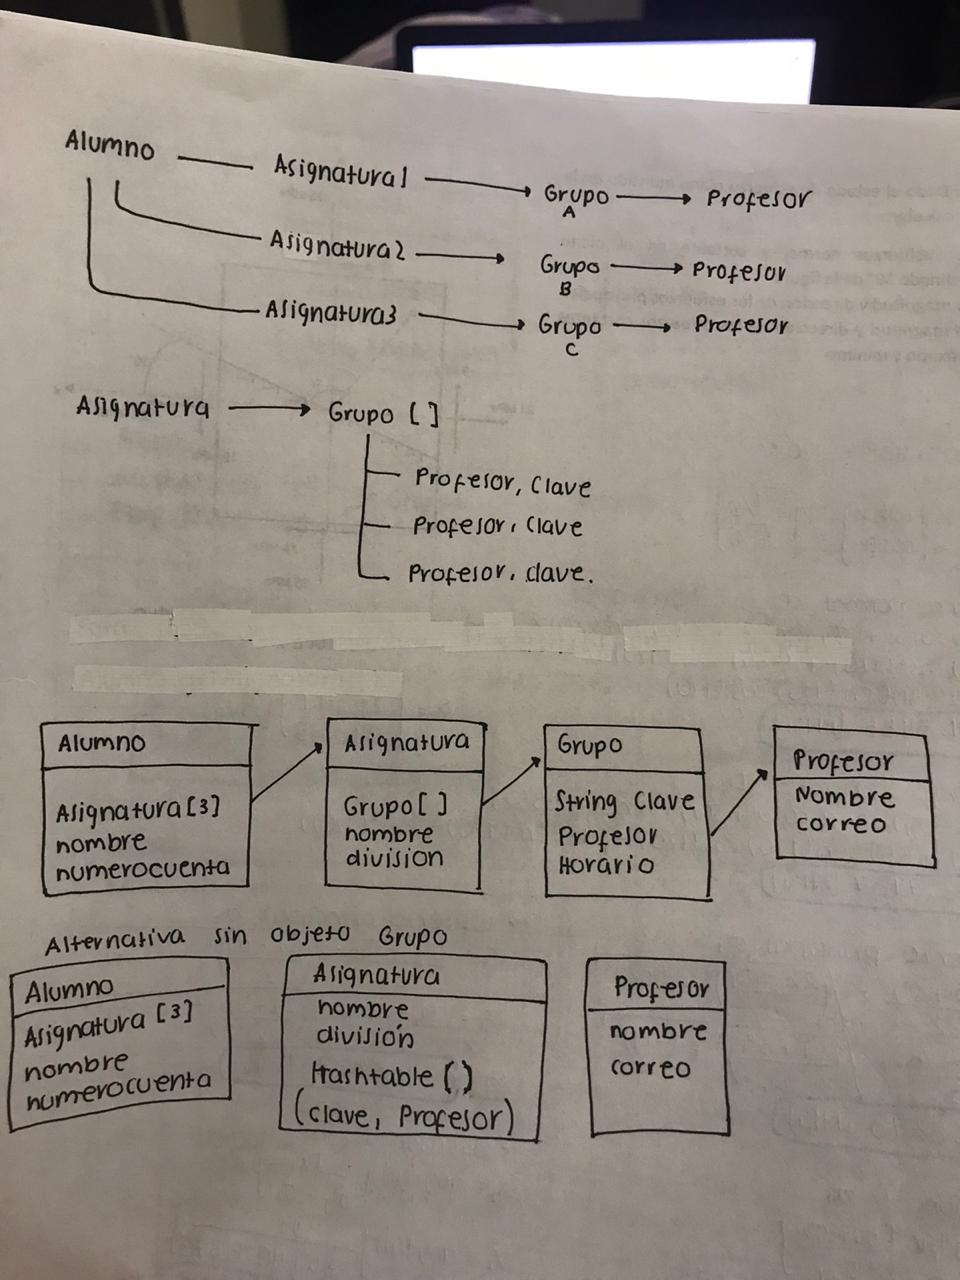 Alumno Asignatura1 Grupo A Profesor
Asignatura2 Grupo B Profesor
Asignatura3 Grupo C Profesor
Asignatura Grupo []
Profesor, Clave
Profesor, Clave
Profesor, clave.
Alumno
Asignatura[3]
nombre
numerocuenta
Asignatura
Grupo[]
nombre
division
Grupo
String Clave
Profesor
Horario
Profesor
Nombre
correo
Alternativa sin objeto Grupo
Alumno
Asignatura [3]
nombre
numerocuenta
Asignatura
nombre
división
Hashtable ()
(clave, Profesor)
Profesor
nombre
correo